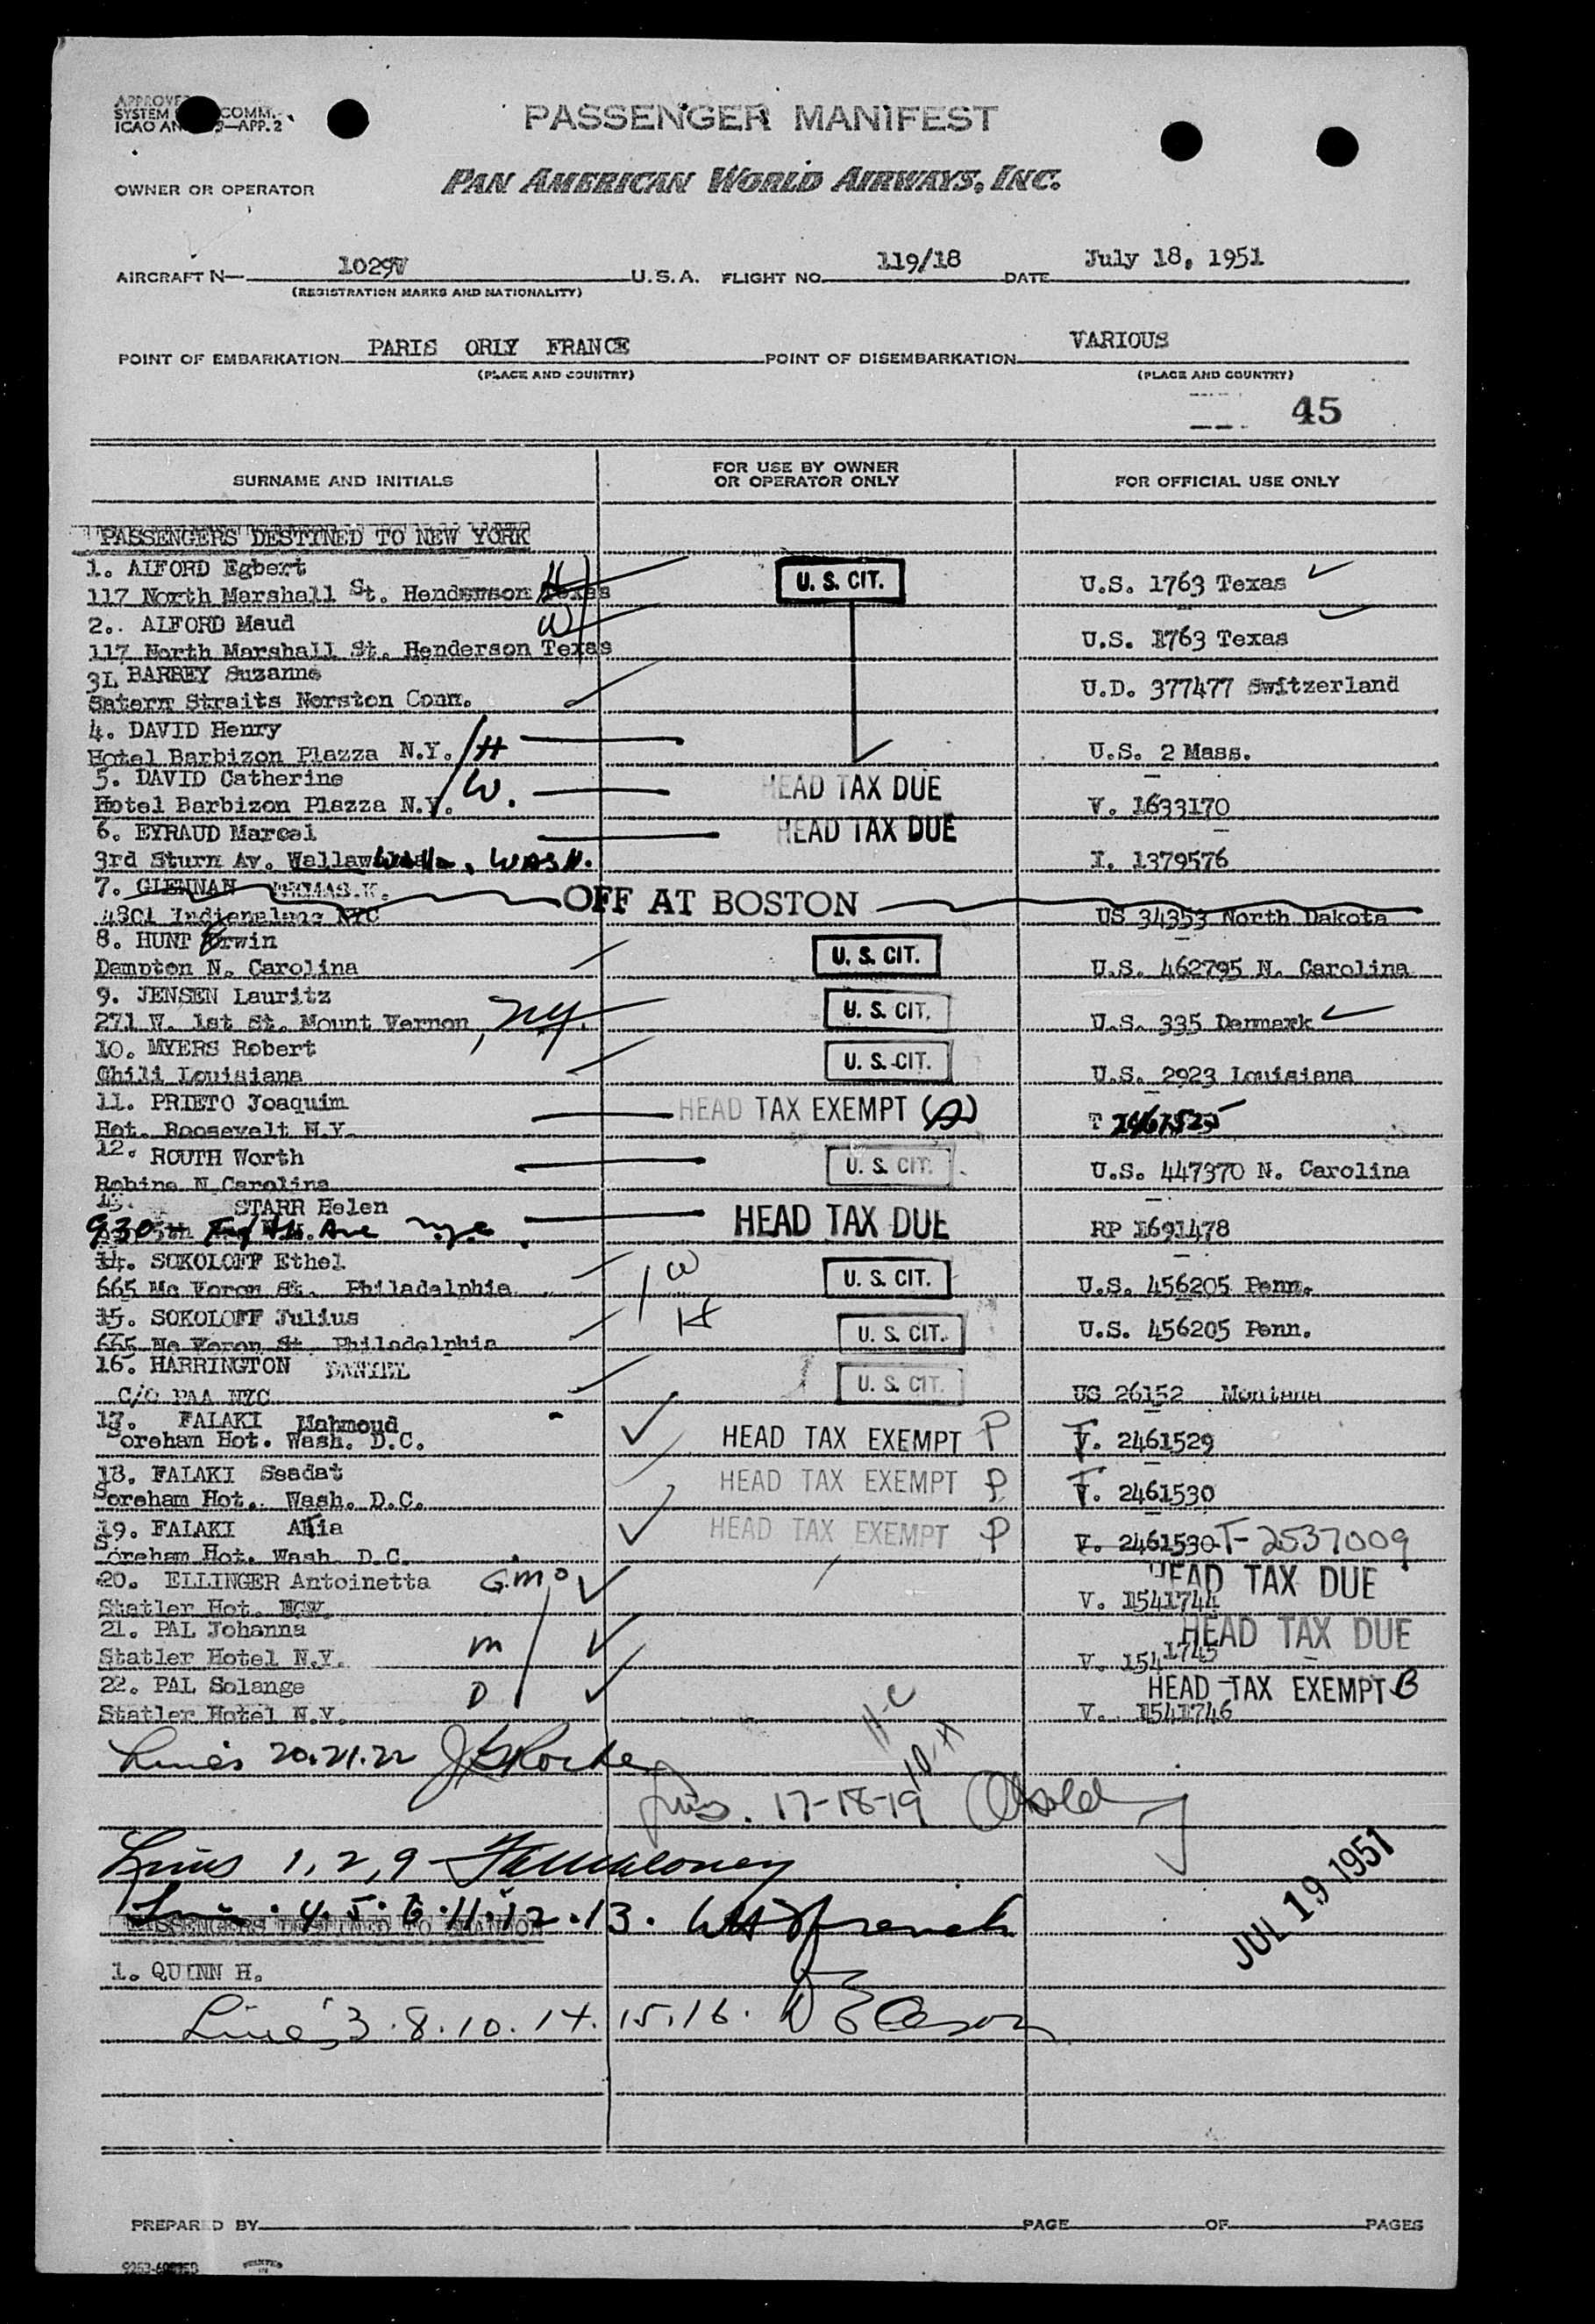 APPROVED
SYSTEM COMM.
ICAO AN 9—APP. 2
PASSENGER MANIFEST
OWNER OR OPERATOR PAN AMERICAN WORLD AIRWAYS, INC.
AIRCRAFT N— 1029V U.S.A. FLIGHT NO. 119/18 DATE July 18, 1951
(REGISTRATION MARKS AND NATIONALITY)
POINT OF EMBARKATION PARIS ORLY FRANCE POINT OF DISEMBARKATION VARIOUS
(PLACE AND COUNTRY) (PLACE AND COUNTRY)
45
SURNAME AND INITIALS FOR USE BY OWNER OR OPERATOR ONLY FOR OFFICIAL USE ONLY
PASSENGERS DESTINED TO NEW YORK
1. ALFORD Egbert H U. S. CIT. U.S. 1763 Texas
117 North Marshall St. Henderson Texas
2. ALFORD Maud W U.S. 1763 Texas
117 North Marshall St. Henderson Texas
3. BARBEY Suzanne U.D. 377477 Switzerland
Satern Straits Norston Conn.
4. DAVID Henry H U.S. 2 Mass.
Hotel Barbizon Plazza N.Y.
5. DAVID Catherine W. HEAD TAX DUE V. 1633170
Hotel Barbizon Plazza N.Y.
6. EYRAUD Marcel HEAD TAX DUE I. 1379576
3rd Sturn Av. Walla Walla, WASH.
7. GLENNAN THOMAS.K. OFF AT BOSTON US 34353 North Dakota
4801 NYC
8. HUNT Erwin U. S. CIT. U.S. 462795 N. Carolina
Dampton N. Carolina
9. JENSEN Lauritz U. S. CIT. U.S. 335 Denmark
271 W. 1st St. Mount Vernon, N.Y.
10. MYERS Robert U. S. CIT. U.S. 2923 Louisiana
Chili Louisiana
11. PRIETO Joaquim HEAD TAX EXEMPT (A) T
Hot. Roosevelt N.Y.
12. ROUTH Worth U. S. CIT. U.S. 447370 N. Carolina
Robins N Carolina
13. STARR Helen HEAD TAX DUE RP 1691478
930 Fifth Ave N.Y.C.
14. SOKOLOFF Ethel W U. S. CIT. U.S. 456205 Penn.
665 Mc Voron St. Philadelphia
15. SOKOLOFF Julius H U. S. CIT. U.S. 456205 Penn.
665 Mc Voron St. Philadelphia
16. HARRINGTON DANIEL U. S. CIT. US 26152 Montana
C/O PAA NYC
17. FALAKI Mahmoud HEAD TAX EXEMPT P T. 2461529
Soreham Hot. Wash. D.C.
18. FALAKI Seadat HEAD TAX EXEMPT P T. 2461530
Soreham Hot. Wash. D.C.
19. FALAKI Atia HEAD TAX EXEMPT P V. 2461530 T-2537009
Soreham Hot. Wash. D.C.
20. ELLINGER Antoinetta G.M. HEAD TAX DUE V. 1541744
Statler Hot.
21. PAL Johanna M HEAD TAX DUE V. 1541745
Statler Hotel N.Y.
22. PAL Solange D HEAD TAX EXEMPT B V. 1541746
Statler Hotel N.Y.
11-C
10-H
Lines 20.21.22
Lins. 17-18-19
Lines 1, 2, 9
JUL 19 1951
4. 5. 6. 11. 12. 13. French
PASSENGERS DESTINED TO SHANNON
1. QUINN H.
Lines 3. 8. 10. 14. 15. 16.
PREPARED BY PAGE OF PAGES
PRINTED IN